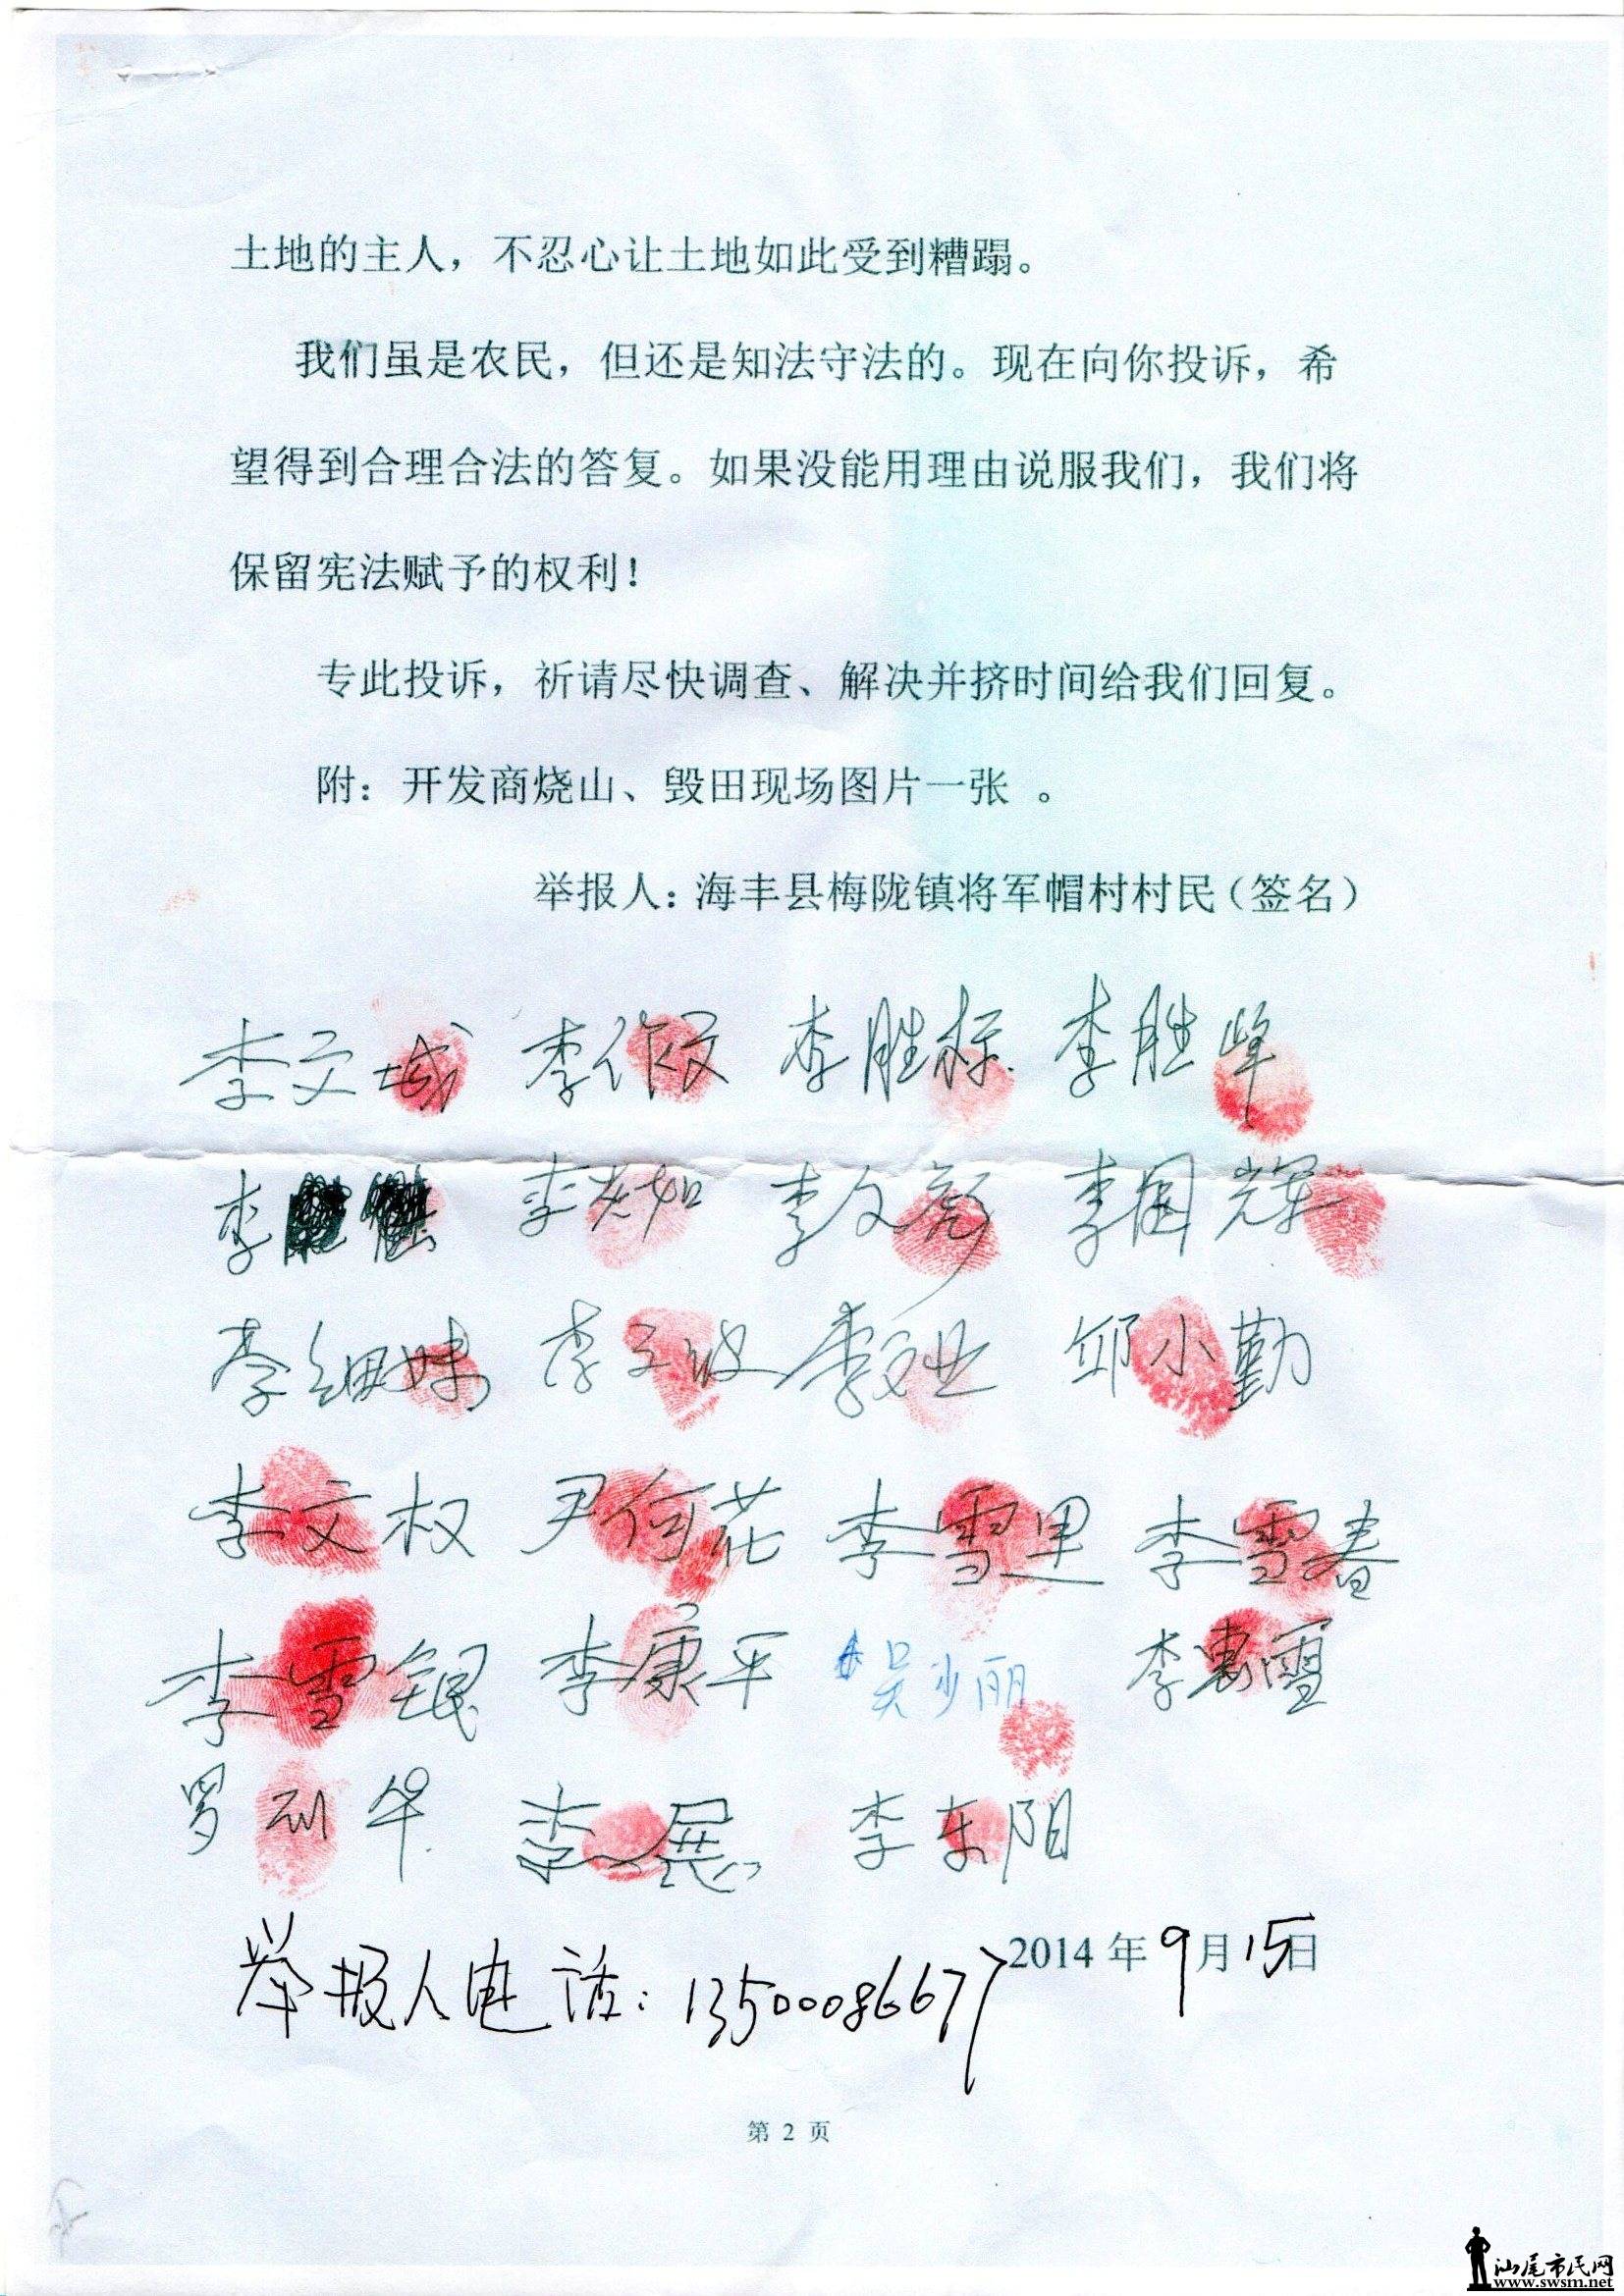 土地的主人，不忍心让土地如此受到糟蹋。
我们虽是农民，但还是知法守法的。现在向你投诉，希
望得到合理合法的答复。如果没能用理由说服我们，我们将
保留宪法赋予的权利！
专此投诉，祈请尽快调查、解决并挤时间给我们回复。
附：开发商烧山、毁田现场图片一张 。
举报人：海丰县梅陇镇将军帽村村民（签名）
李文城 李作文 李胜标 李胜峰
李 李 李文彪 李国辉
李细妹 李文波 李文业 邱小勤
李文权 尹何花 李雪里 李雪春
李雪银 李康平 吴少丽 李惠雪
罗 华 李展 李东阳
2014 年 9 月 15 日
举报人电话：13500086677
第 2 页
汕尾市民网
www.swsm.net